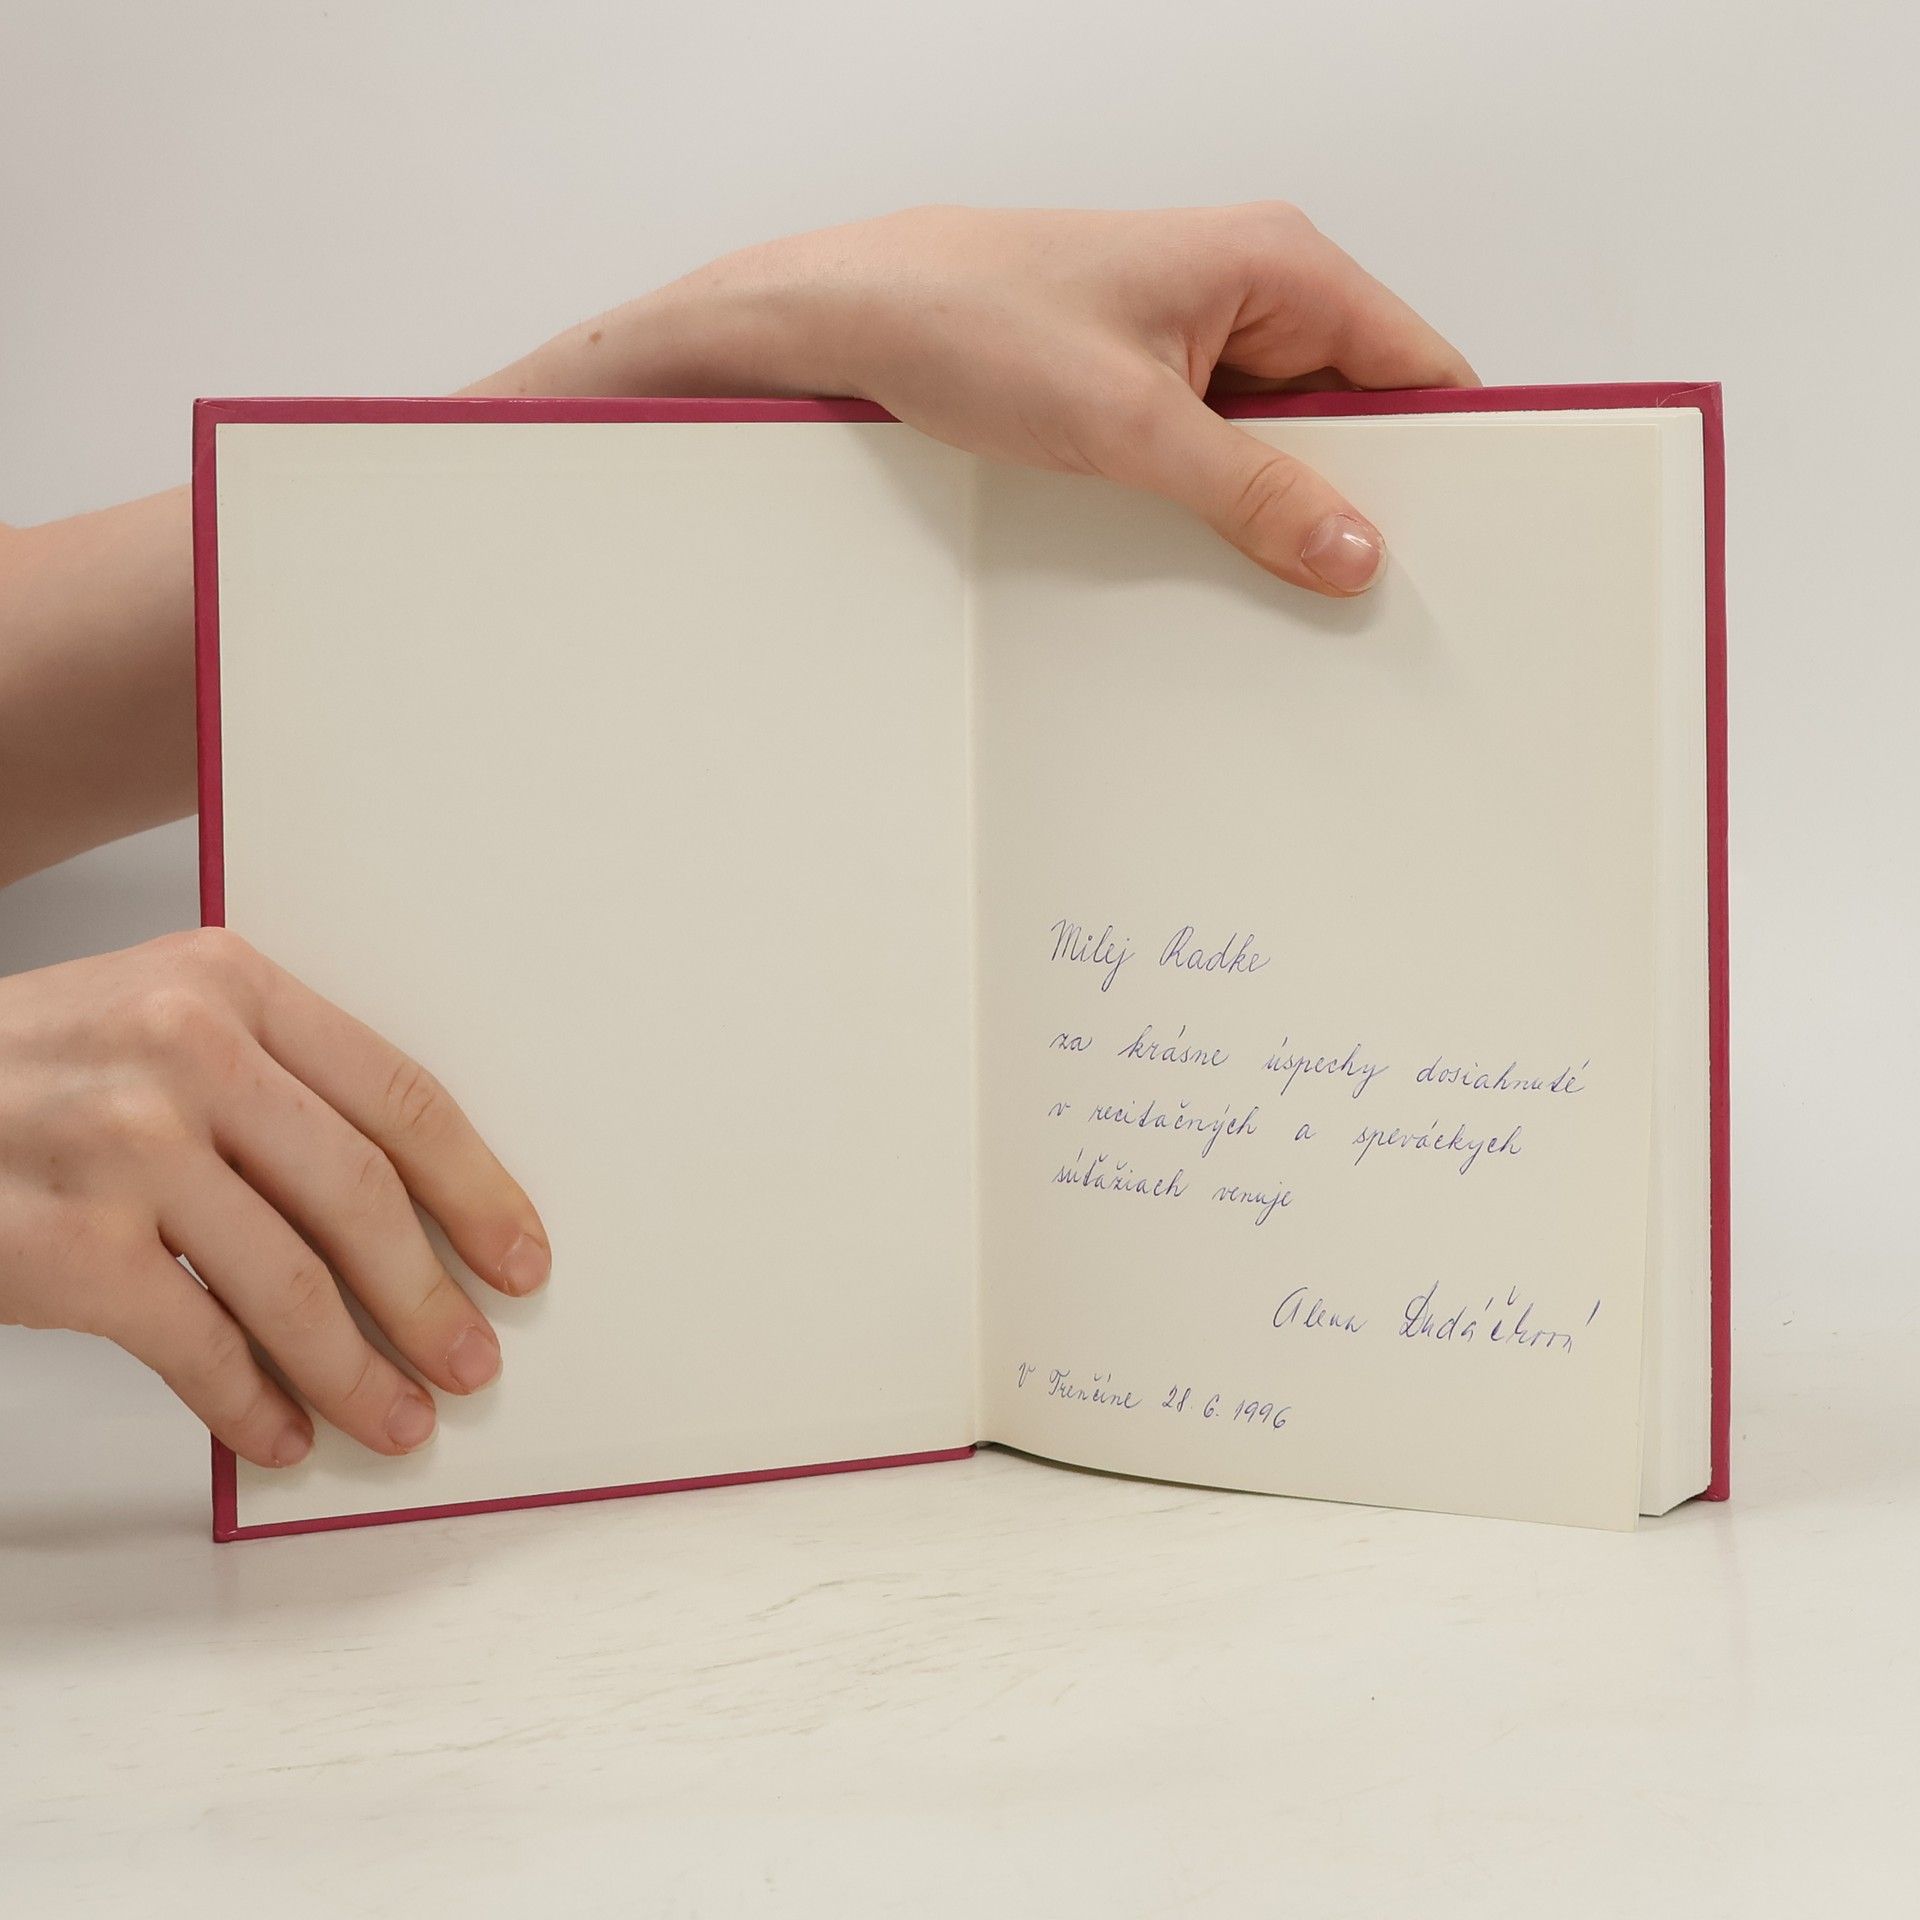 Milej Radke
za krásne úspechy dosiahnuté
v recitačných a speváckych
súťažiach venuje
Alena
V Trenčíne 28. 6. 1996